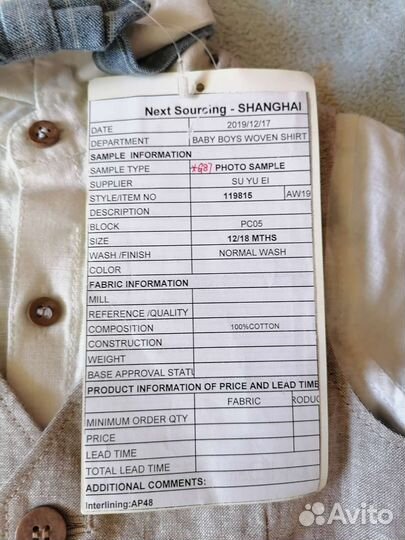 Next Sourcing - SHANGHAI
DATE 2019/12/17
DEPARTMENT BABY BOYS WOVEN SHIRT
SAMPLE INFORMATION
SAMPLE TYPE PHOTO SAMPLE
SUPPLIER SU YU EI
STYLE/ITEM NO 119815 AW19
DESCRIPTION
BLOCK PC05
SIZE 12/18 MTHS
WASH /FINISH NORMAL WASH
COLOR
FABRIC INFORMATION
MILL
REFERENCE /QUALITY
COMPOSITION 100%COTTON
CONSTRUCTION
WEIGHT
BASE APPROVAL STATU
PRODUCT INFORMATION OF PRICE AND LEAD TIME
FABRIC RODUC
MINIMUM ORDER QTY
PRICE
LEAD TIME
TOTAL LEAD TIME
ADDITIONAL COMMENTS:
Interlining:AP48
Avito